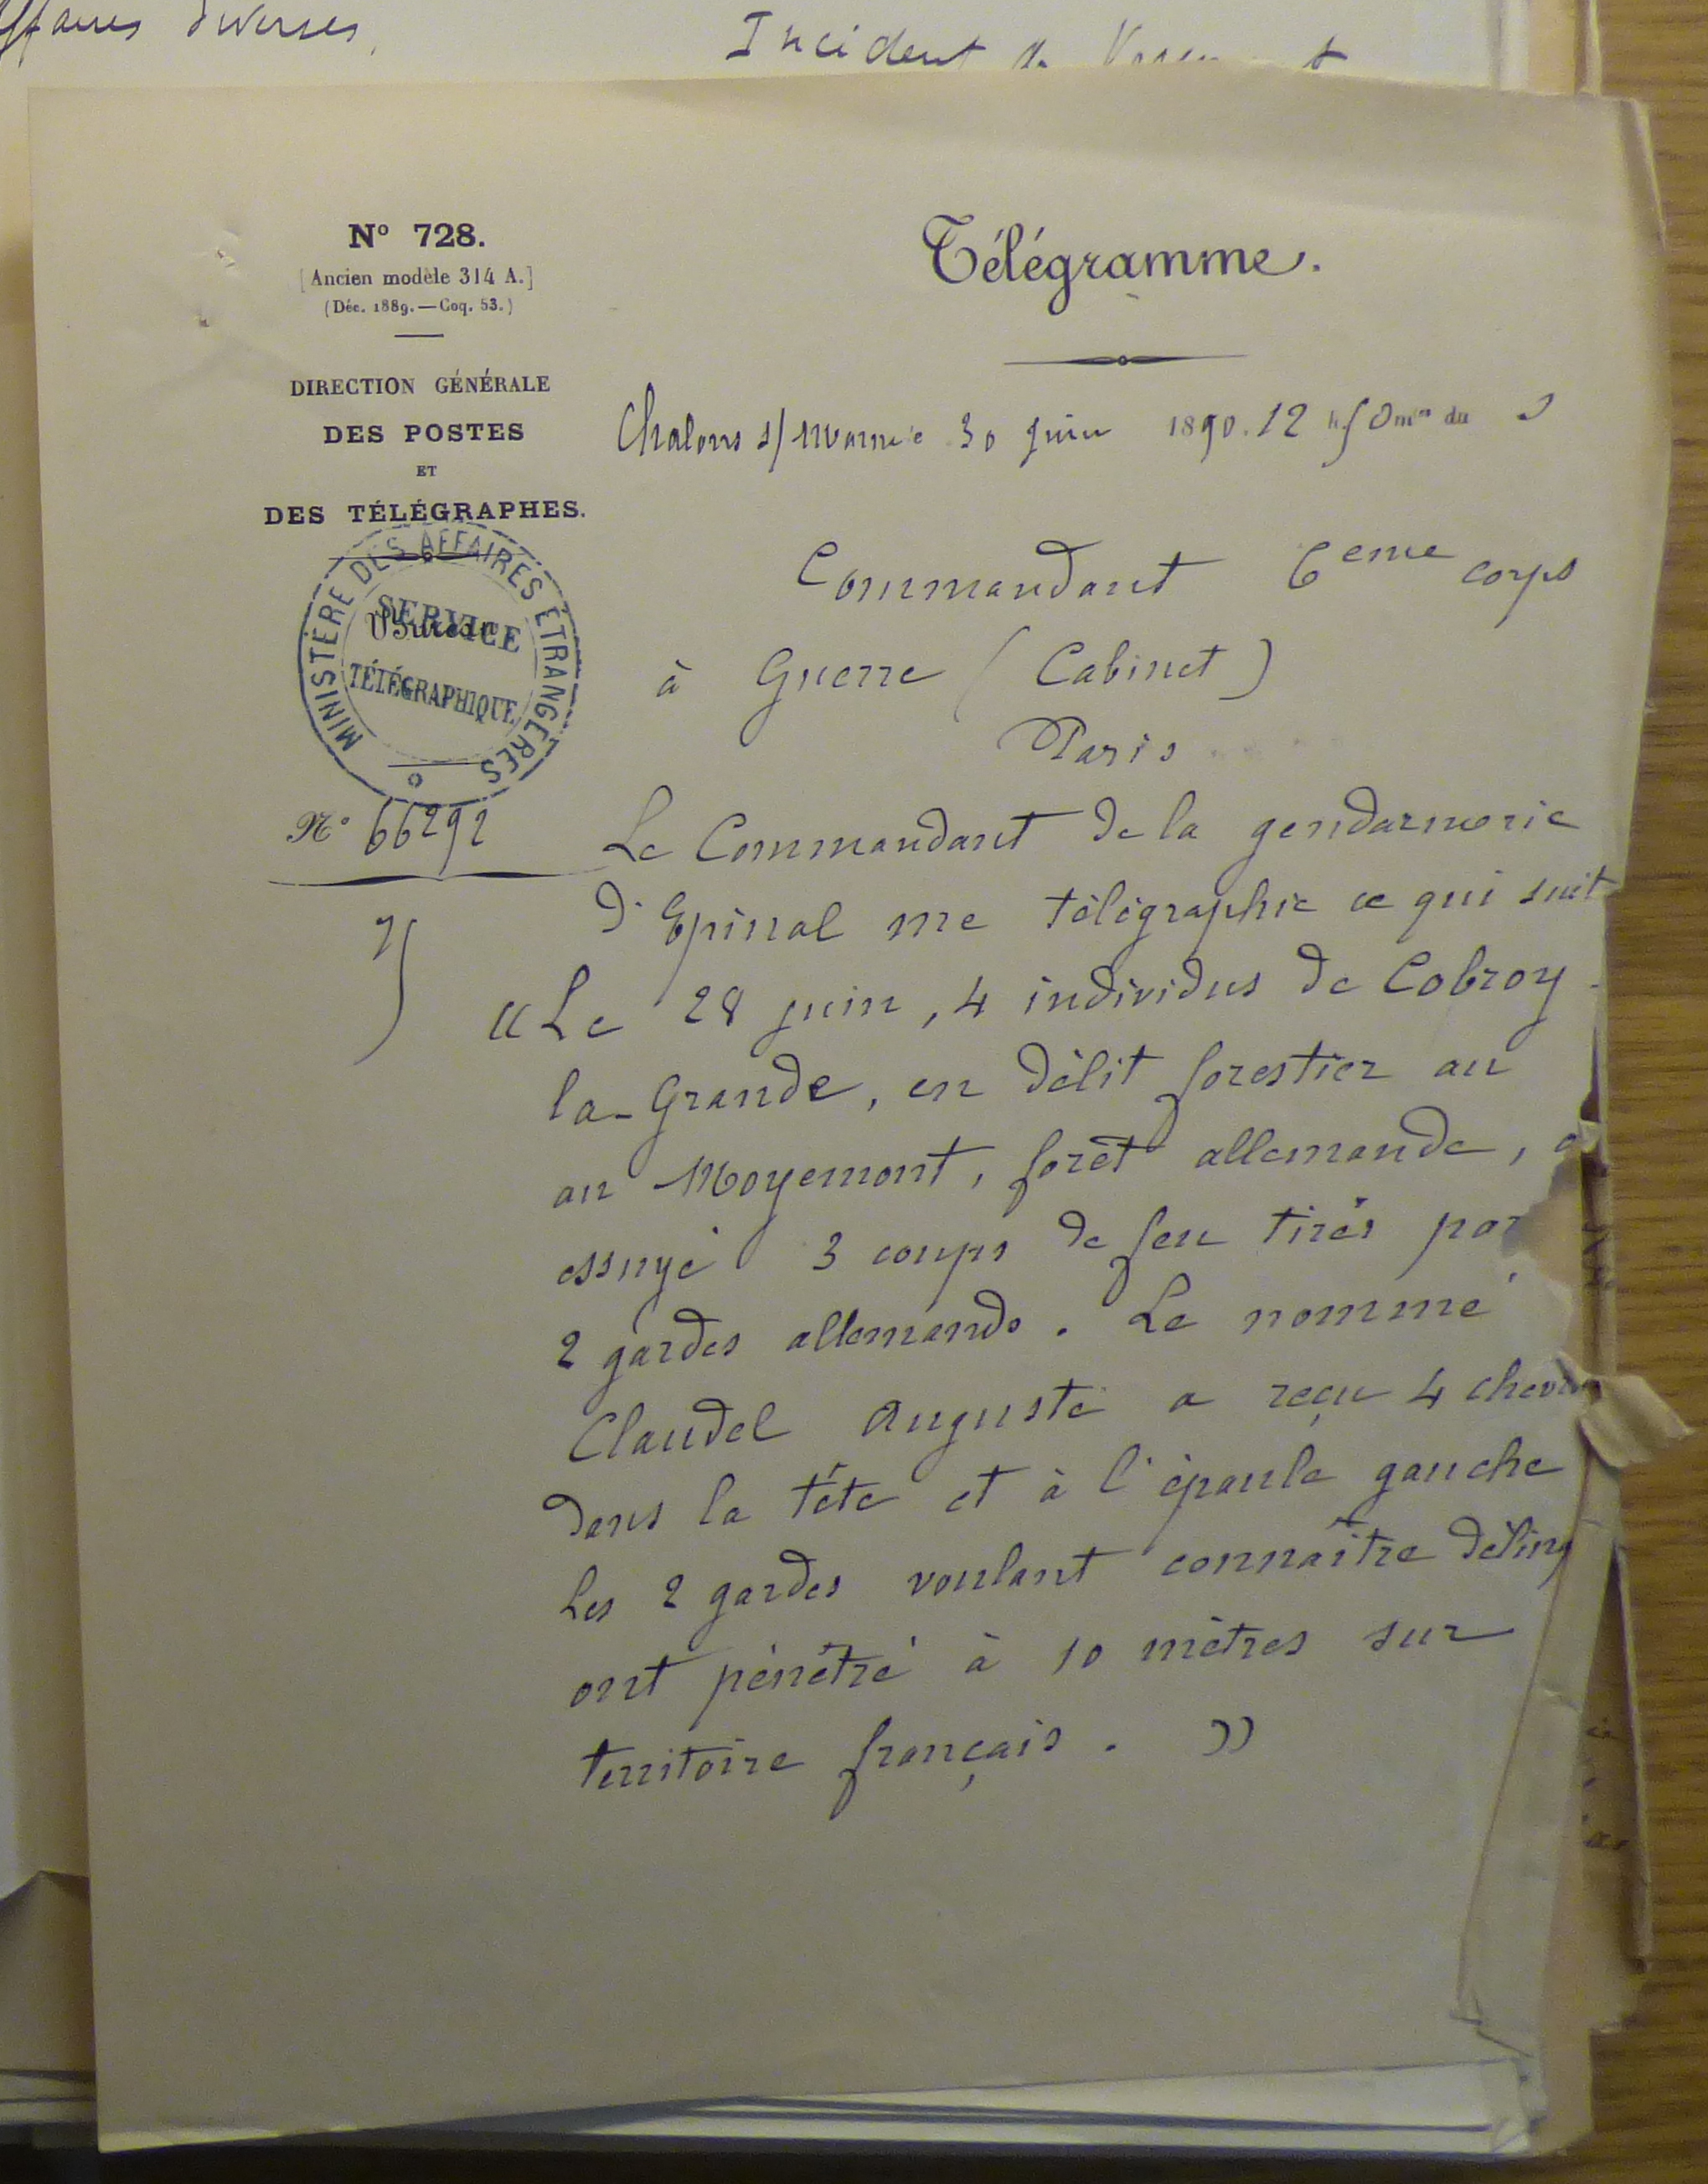 ffaires diverses
Incident de
N° 728.
[Ancien modèle 314 A.]
(Déc. 1889. — Coq. 53.)
DIRECTION GÉNÉRALE
DES POSTES
ET
DES TÉLÉGRAPHES.
MINISTÈRE DES AFFAIRES ÉTRANGÈRES
SERVICE
Bureau
TÉLÉGRAPHIQUE
N° 66292
Télégramme.
Chalons s/ Marne 30 juin 1890. 12 h 50 mes du S
Commandant 6eme corps
à Guerre (Cabinet)
Paris
Le Commandant de la gendarmerie
d'Epinal me télégraphie ce qui suit
«Le 28 juin, 4 individus de Cobroy-
la-Grande, en délit forestier au
au Moyemont, forêt allemande, a
essuyé 3 coups de feu tirés par
2 gardes allemands. Le nommé
Claudel Auguste a reçu 4 chevr
dans la tête et à l'épaule gauche
Les 2 gardes voulant connaître délinq
ont pénétré à 10 mètres sur
territoire français. »